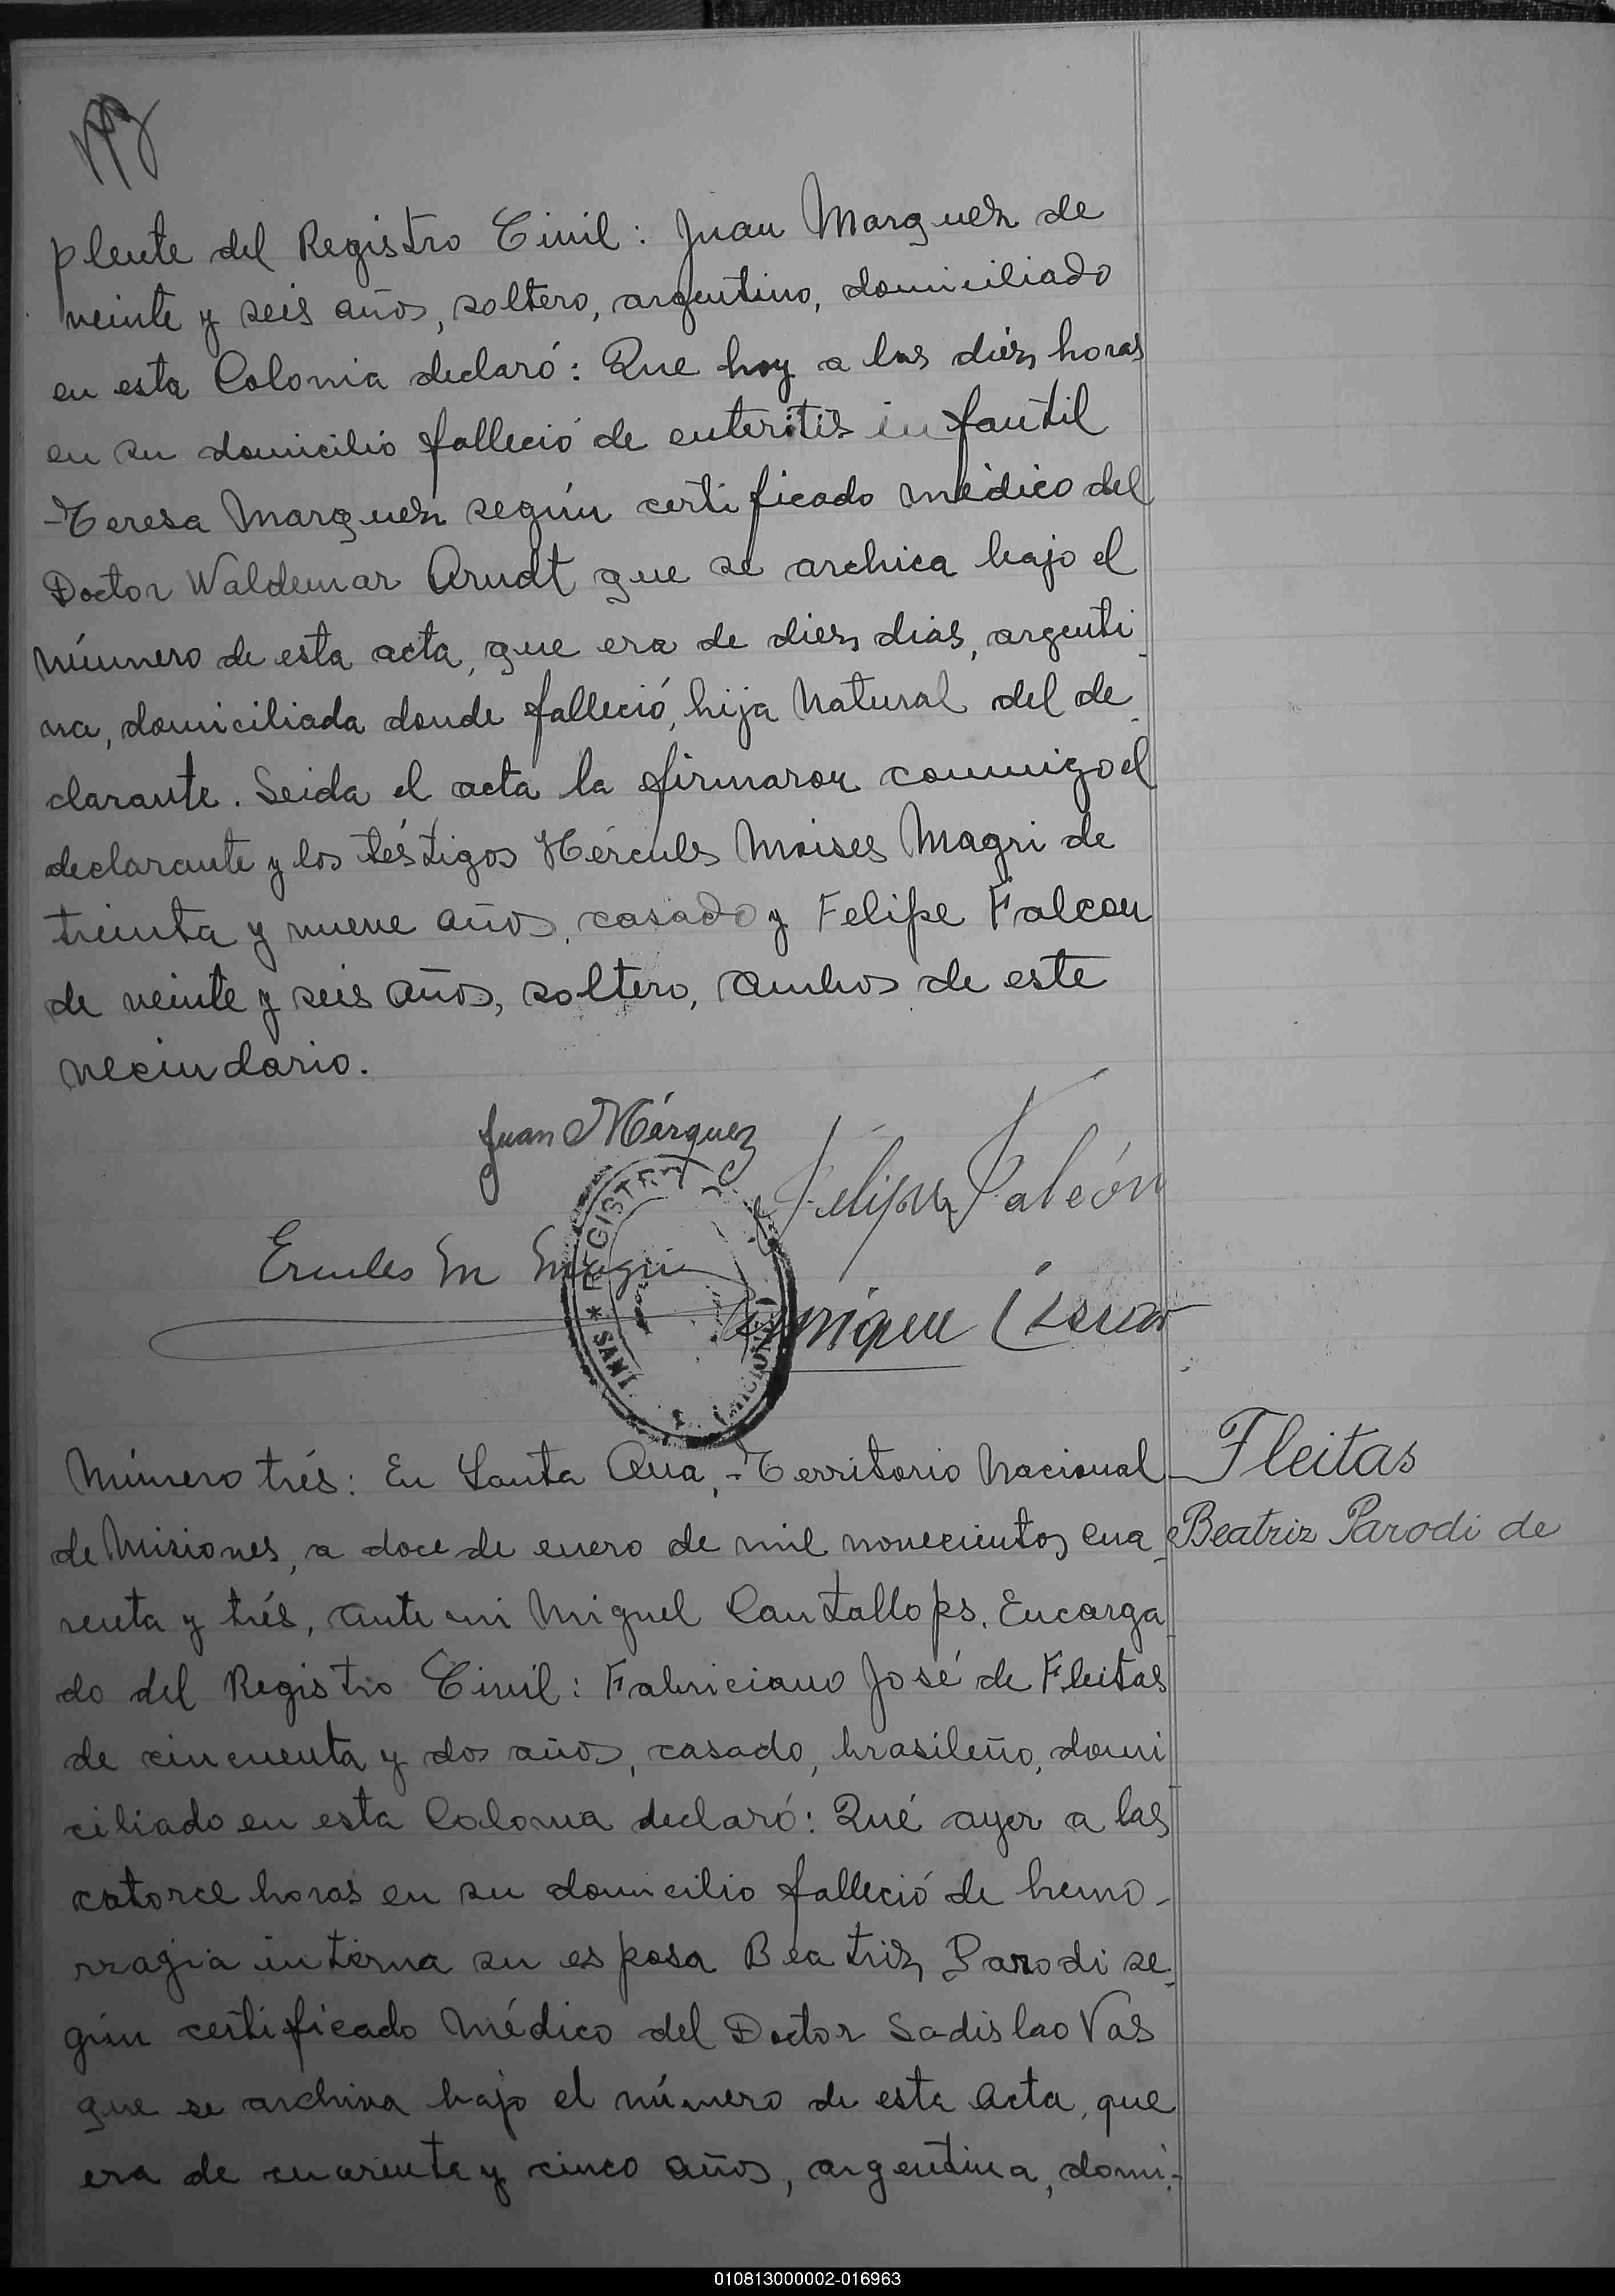 plente del Registro Civil: Juan Marquez de
veinte y seis años, soltero, argentino, domiciliado
en esta Colonia declaró: Que hoy a las diez horas
en su domicilio falleció de enteritis infantil
Teresa Marquez según certificado médico del
Doctor Waldemar Arndt que se archica bajo el
número de esta acta, que era de diez dias, argenti
na, domiciliada donde falleció, hija natural del de
clarante. Leida el acta la firmaron conmigo el
declarante y los téstigos Hércules Moises Magri de
treinta y nueve años, casado y Felipe Falcon
de veinte y seis años, soltero, ambos de este
vecindario.
Juan Márquez
Felipe Falcón
Ercules M Magri
Enrique
* REGISTRO
SANT
Número trés: En Santa Ana, Territorio Nacional
Fleitas
de Misiones, a doce de enero de mil novecientos cua
Beatriz Parodi de
renta y trés, ante mi Miguel Cantallops, Encarga
do del Registro Civil: Fabriciano José de Fleitas
de cincuenta y dos años, casado, brasileño, domi
ciliado en esta Colonia declaró: Qué ayer a las
catorce horas en su domicilio falleció de hemo-
rragia interna su esposa Beatriz Parodi se
gún certificado médico del Doctor Ladislao Vas
que se archiva bajo el número de esta acta, que
era de cuarenta y cinco años, argentina, domi-
010813000002-016963